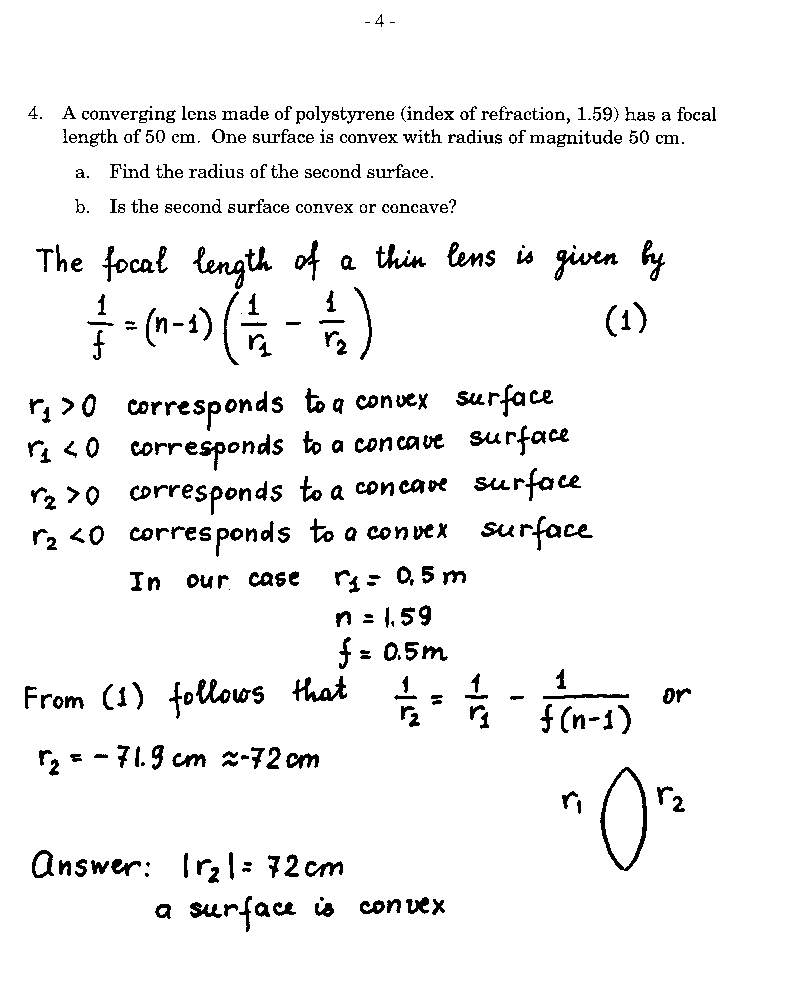 - 4 -
4. A converging lens made of polystyrene (index of refraction, 1.59) has a focal
length of 50 cm. One surface is convex with radius of magnitude 50 cm.
a. Find the radius of the second surface.
b. Is the second surface convex or concave?
The focal length of a thin lens is given by
1/f = (n-1)(1/r₁ - 1/r₂) (1)
r₁ >0 corresponds to a convex surface
r₁ <0 corresponds to a concave surface
r₂ >0 corresponds to a concave surface
r₂ <0 corresponds to a convex surface
In our case r₁ = 0,5 m
n = 1.59
f = 0.5m
From (1) follows that 1/r₂ = 1/r₁ - 1/f(n-1) or
r₂ = - 71.9 cm ≈ -72 cm
r₁ r₂
Answer: |r₂| = 72 cm
a surface is convex